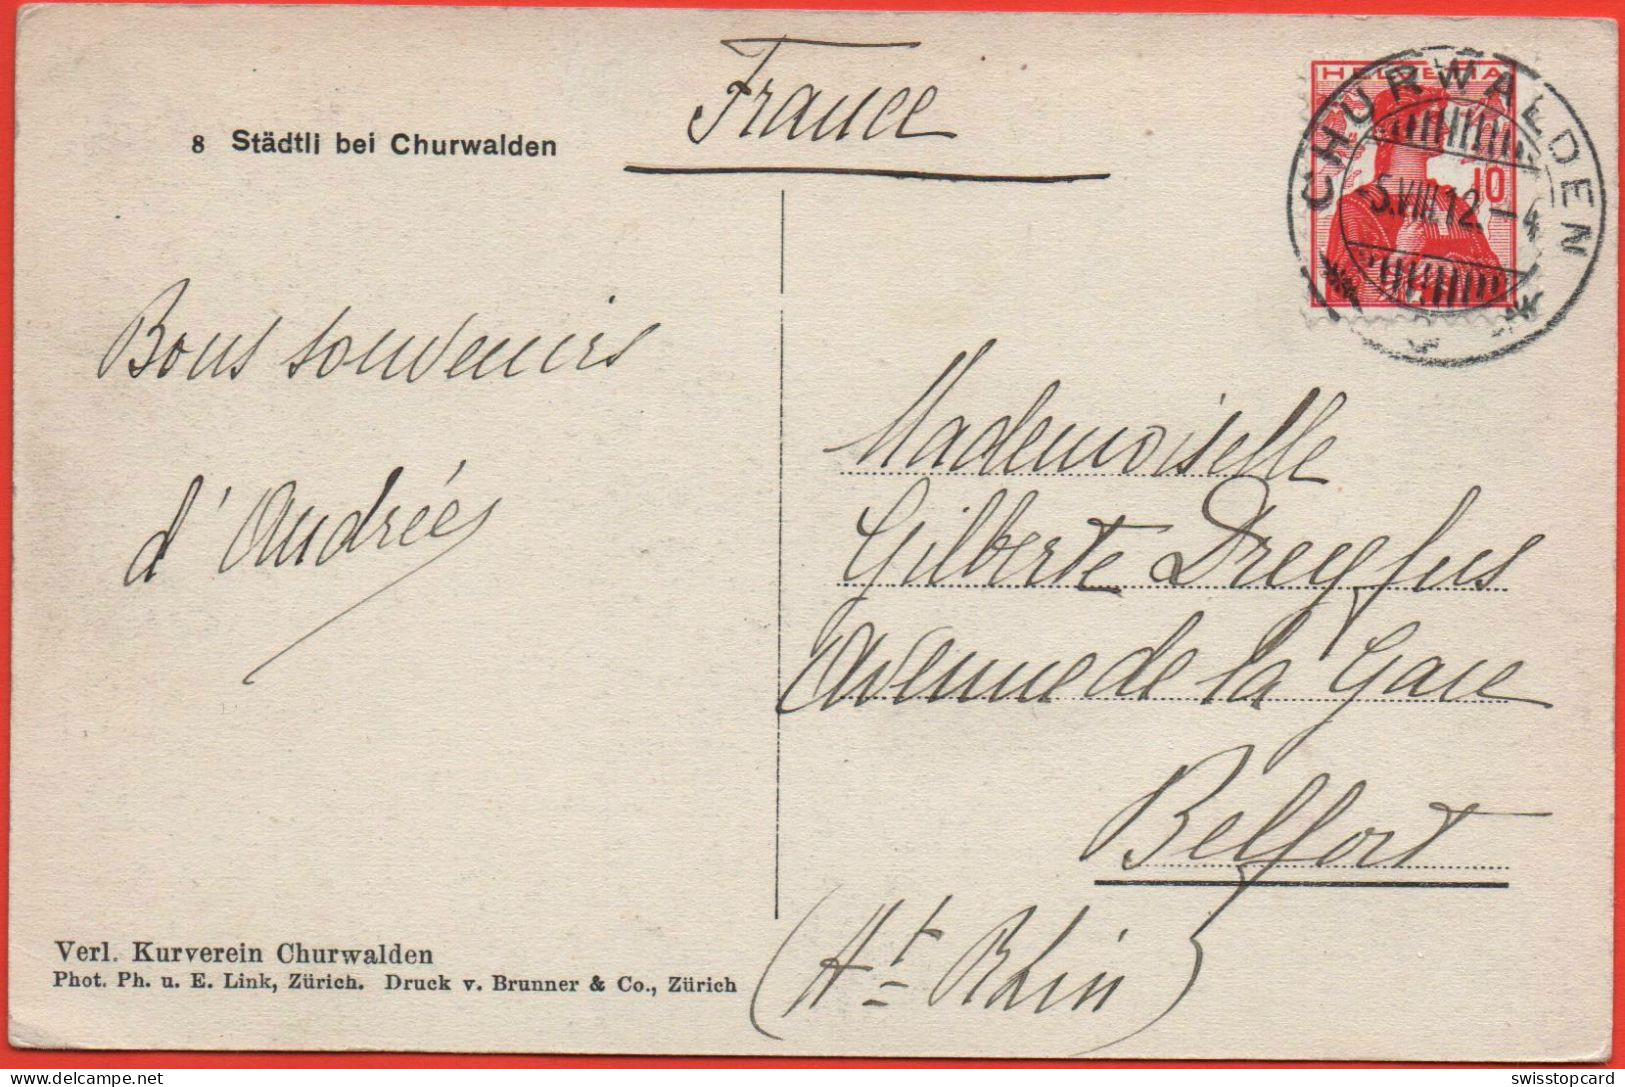 8 Städtli bei Churwalden
France
HELVETIA
10
CHURWALDEN
-5.VIII.12.-4
Bons souvenirs
d'Andrée
Mademoiselle
Gilberte Dreyfus
Avenue de la Gare
Belfort
(Ht Rhin)
Verl. Kurverein Churwalden
Phot. Ph. u. E. Link, Zürich. Druck v. Brunner & Co., Zürich
delcampe.net
swisstopcard